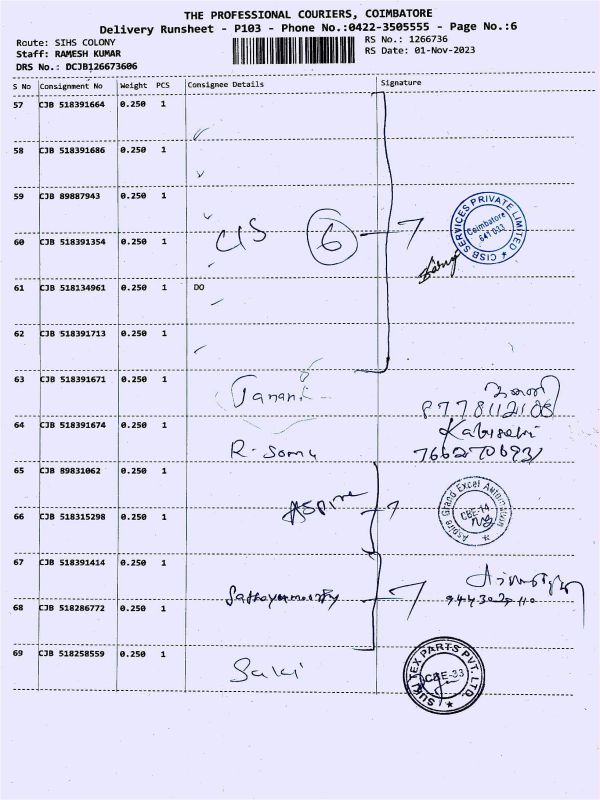 THE PROFESSIONAL COURIERS, COIMBATORE
Delivery Runsheet - P103 - Phone No.:0422-3505555 - Page No.:6
Route: SIHS COLONY
RS No.: 1266736
Staff: RAMESH KUMAR
RS Date: 01-Nov-2023
DRS No.: DCJB126673606
S No Consignment No Weight PCS Consignee Details Signature
57 CJB 518391664 0.250 1
58 CJB 518391686 0.250 1
59 CJB 89887943 0.250 1
CISB SERVICES PRIVATE LIMITED
Coimbatore
641 033
6
60 CJB 518391354 0.250 1
61 CJB 518134961 0.250 1 DO
62 CJB 518391713 0.250 1
63 CJB 518391671 0.250 1 Janani
64 CJB 518391674 0.250 1 R. Somu
65 CJB 89831062 0.250 1
Aspire
Aspire Grand Excel Automation
CBE-14
66 CJB 518315298 0.250 1
67 CJB 518391414 0.250 1
Sathyamoorthy
68 CJB 518286772 0.250 1
69 CJB 518258559 0.250 1 Suki
SUKI TEX PARTS PVT. LTD.
CBE-33